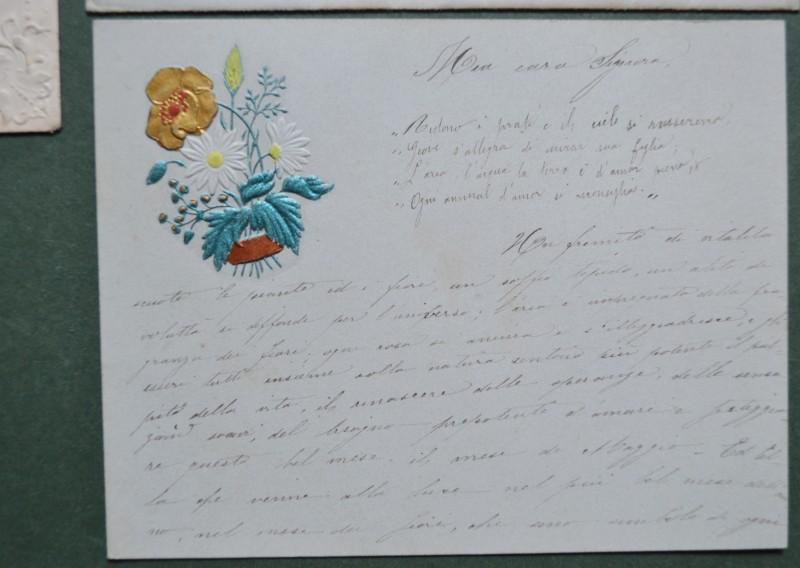 Mia cara Signora,
„ Ridono i prati e il ciel si rasserena;
„ Giove s'allegra di mirar sua figlia;
„ L'aria l'acqua la terra è d'amor piena;
„ Ogni animal d'amor si riconsiglia. „
Un fremito di vitalità
scuote le piante ed i fiori, un soffio tiepido, un alito di
voluttà si effonde per l'universo; l'aria è impregnata della fra-
granza dei fiori; ogni cosa si anima e s'illeggiadresce, e gli
esseri tutti insieme colla natura sentono più potente il pal-
pito della vita, il rinascere delle speranze, delle sensa
zioni soavi, del bisogno prepotente d'amare e festeggia
re questo bel mese, il mese di Maggio. Ed El
la che venne alla luce nel più bel mese dell'an
no, nel mese dei fiori, che sono simbolo di ogni